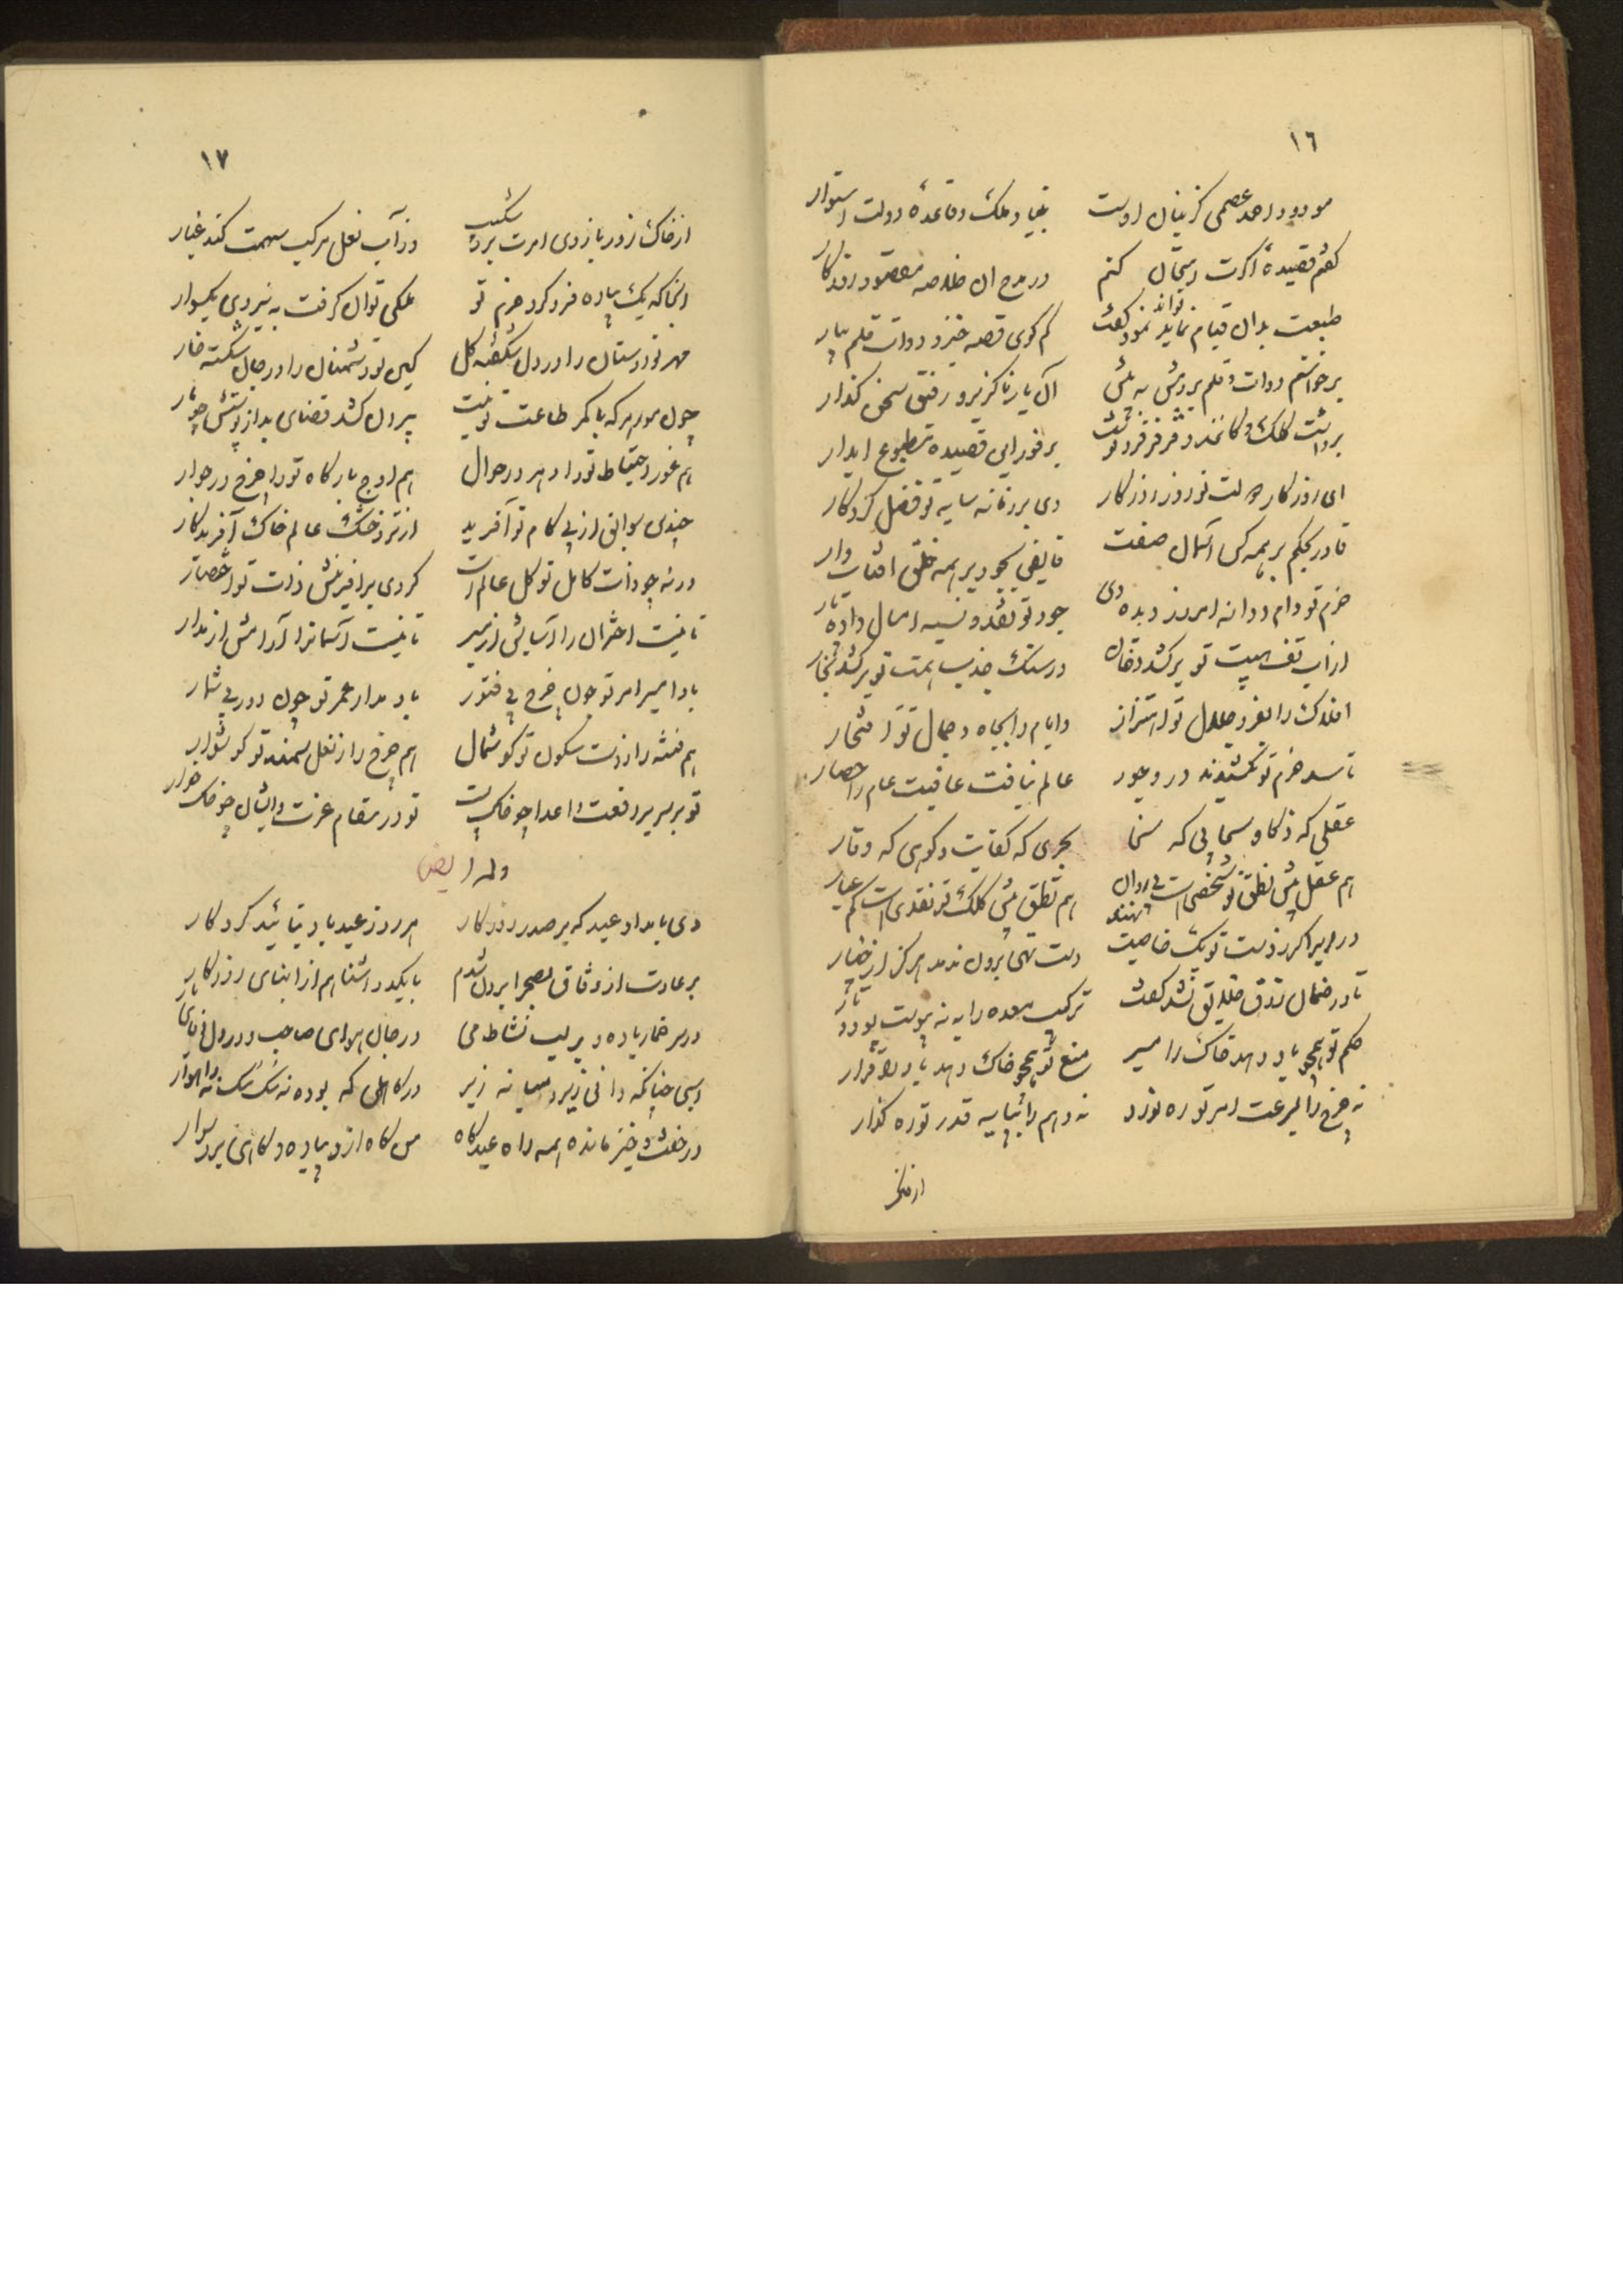 ١٦
مودود احمد عصمی کز بنان اوست بنیاد ملک و قاعدهٔ دولت استوار
گفتم قصیدهٔ اگرت امتحان کنم در مدح ان خلاصه مقصود روزگار
طبعت بدان قیام نماید تواند نمود گفت کم گوی قصه خیز و دوات و قلم بیار
برخواستم دوات و قلم بردمش به پیش آن یار ناگزیر و رفیق سخن گذار
برداشت کلک و کاغذ و فرفر فرو نوشت بر فور این قصیده مطبوع ابدار
ای روزگار دولت تو روز روزگار وی بر زمانه سایه تو فضل کردکار
قادر بحکم بر همه کس آسمان صفت فایض بجود بر همه خلق افتاب وار
حزم تو دام و دانه امروز دیده دی جود تو نقد و نسیه امسال داده پار
از اب تف هیبت تو برکشد دخان در سنک جذب همت تو برکشد بخار
افلاک را بعز و جلال تو اهتزاز و ایام را بجاه و جمال تو افتخار
تا سد حزم تو نکشیدند در وجود عالم نیافت عافیت عام را حصار
عقلی که ذکا و سحابی که سخا بحری که کفایت و کوهی که وقار
هم عقل پیش نطق تو شخصی است بی روان هم نطق پیش کلک تو نقدی است کم عیار
در ابر اکر ز دست تو یک خاصیت نهند دست تهی برون ندمد هرکز از چنار
تا در ضمان رزق خلایق نشد کفت ترکیب معده را نه بپیوست پود و تار
حکم تو همچو باد دهد خاک را مسیر منع تو همچو خاک دهد باد را قرار
نه چرخ را بسرعت امر تو ره نورد نه وهم را بپایه قدر تو ره کذار
از خاک
١٧
از خاک زور بازوی امرت برد شکیب وز آب نعل مرکب سهمت کند غبار
انجا که یک پیاده فرو کرد عزم تو ملکی توان گرفت به نیروی یکسوار
مهر تو دوستان را در دل شکفته گل کین تو دشمنان را در جان شکسته خار
چون مور هر که با کمر طاعت تو نیست بیرون کشد قضای بد از پوستش چو مار
هم غور احتیاط تو را دهر در حوال هم اوج بارگاه تو را چرخ در جوار
چندی سوابق از پی کام تو آفرید از تر و خشک عالم خاک آفریدکار
ورنه چو ذات کامل تو کل عالم است کردی بر افرینش ذات تو اختصار
تا نیست اختران را آسایش از مسیر تا نیست آسمانرا آرامش از مدار
بادا مسیر امر تو چون چرخ بی فتور باد مدار عمر تو چون دور بی شمار
هم فتنه را ز دست سکون تو گوشمال هم چرخ را ز نعل سمند تو گوشوار
تو بر سریر رفعت و اعدا چو خاک پست تو در مقام عزت و ایشان چو خاک خوار
وله ایضا
دی بامداد عید که بر صدر روزکار هر روز عید باد بتائید کردکار
بر عادت از وثاق بصحرا برون شدم با یکدو اشنا هم از ابنای روزکار
در سر خمار باده و بر لب نشاط می در جان هوای صاحب و در دل ثنای یار
اسبی چنانکه دانی زیر و میانه زیر وز کاهلی که بوده نه سک سک نه راهوار
در خفت و خیز مانده همه راه عیدکاه من کاه ازو پیاده و کاهی برو سوار